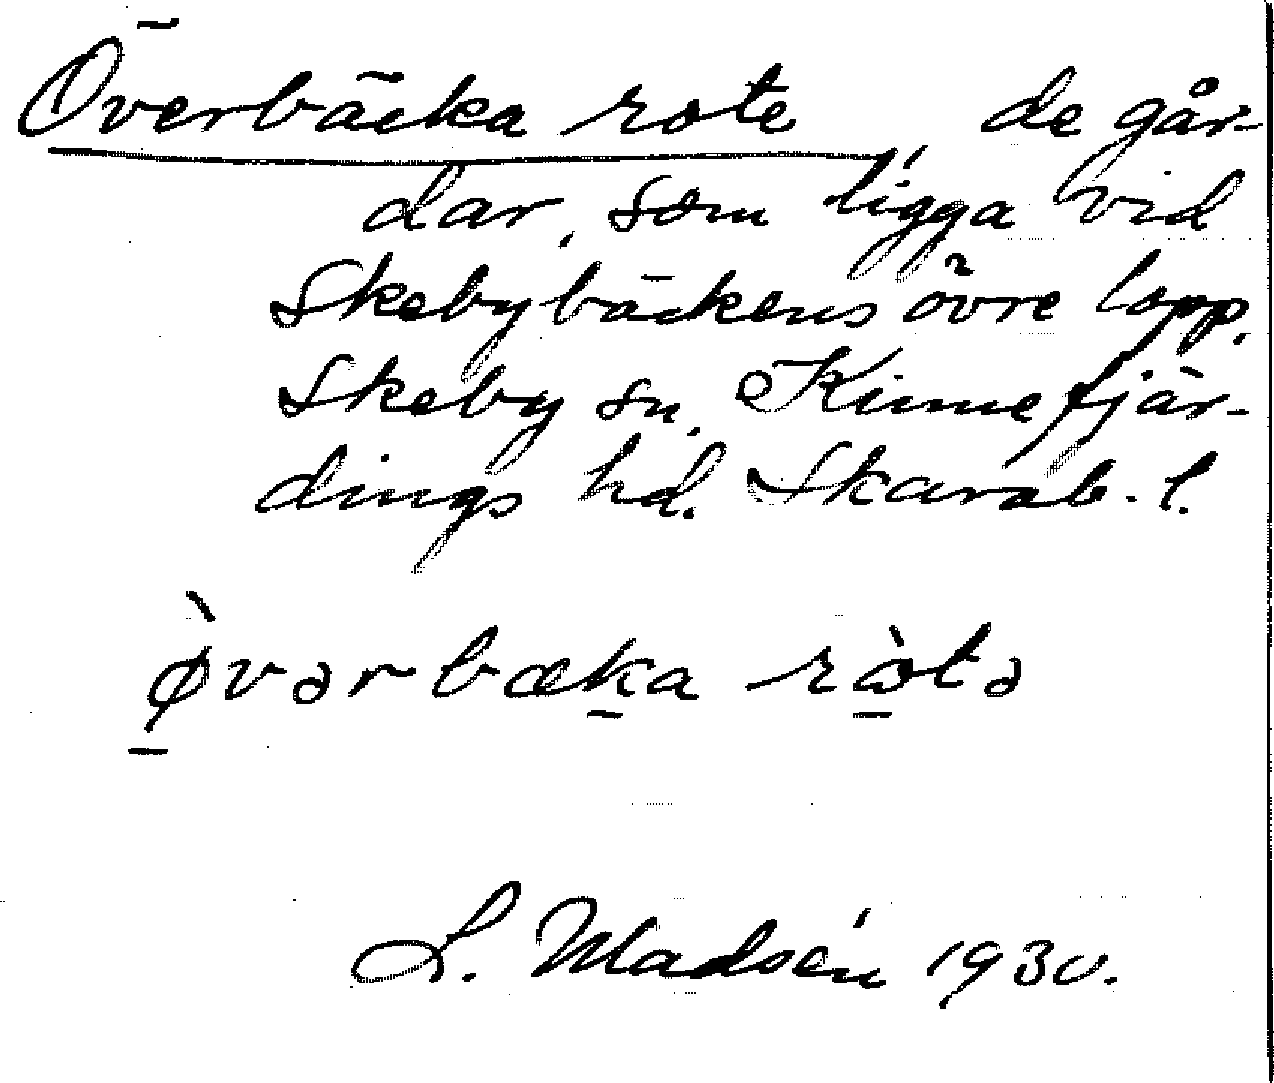 Överbäcka rote de går-
dar, som ligga vid
Skebybäckens övre lopp.
Skeby sn, Kinnefjär-
dings hd. Skarab. l.
ø̀vərbæka ròtə
L. Madsén 1930.